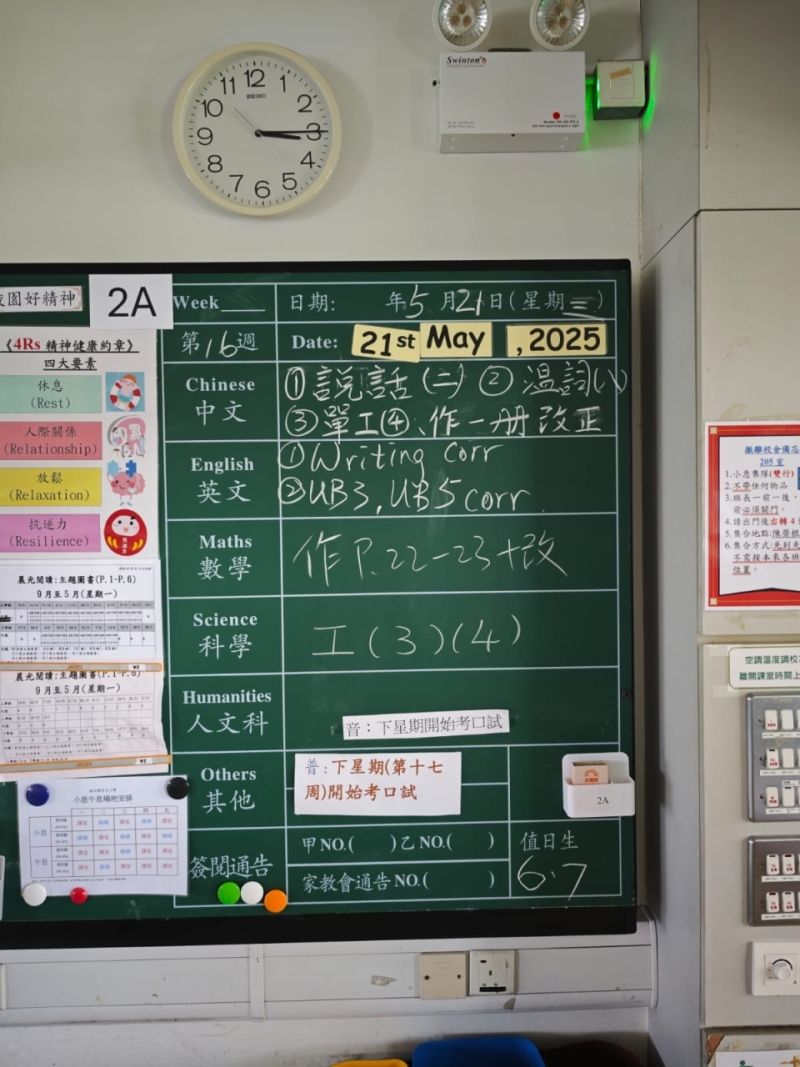 12
1
2
3
4
5
6
7
8
9
10
11
SEIKO
Swinton's
校園好精神
2A
《4Rs 精神健康約章》
四大要素
休息
(Rest)
人際關係
(Relationship)
放鬆
(Relaxation)
抗逆力
(Resilience)
晨光閱讀:主題圖書(P.1-P.6)
9月至5月(星期一)
晨光閱讀:主題圖書(P.1-P.6)
9月至5月(星期一)
小息午息場地安排
小息
午息
Week____ 日期: 年5月21日(星期三)
第16週 Date: 21st May , 2025
Chinese 中文
①說話(二) ②溫詞(八)
③單工④、作一册改正
English 英文
①Writing corr
②UB3, UB5 corr.
Maths 數學
作P.22-23+改
Science 科學
工(3)(4)
Humanities 人文科
音:下星期開始考口試
Others 其他
普:下星期(第十七
周)開始考口試
2A
簽閱通告
甲NO.( )乙NO.( )
家教會通告NO.( )
值日生
6.7
205室
1.小息集隊(雙行)
2.不帶任何物品
3.班長一前一後,
前必須關門。
4.請出門後右轉4
5.集合地點:陳榮根
6.集合方式:先到先
不需按本來各班
位置。
空調溫度調校
離開課室時間上